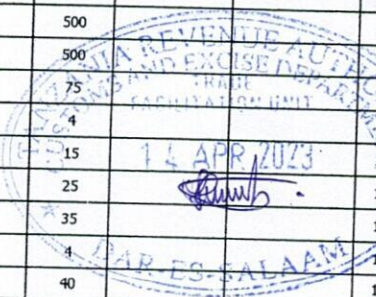 500
500
75
4
15
25
35
4
40
TANZANIA REVENUE AUTHO
CUSTOMS AND EXCISE DEPARTME
TRADE
FACILITATION UNIT
14 APR 2023
DAR-ES-SALAAM